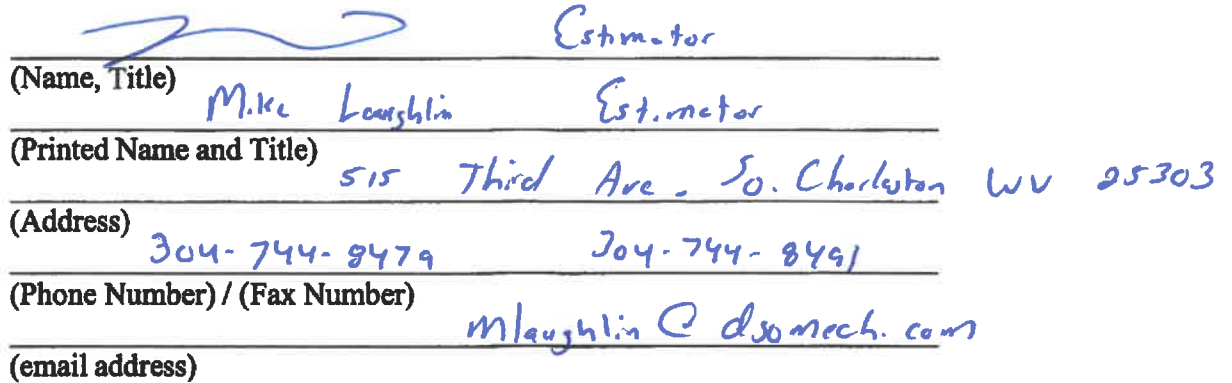 Estimator
(Name, Title)
Mike Laughlin Estimator
(Printed Name and Title)
515 Third Ave. So. Charleston WV 25303
(Address)
304-744-8479 304-744-8491
(Phone Number) / (Fax Number)
mlaughlin@dsomech.com
(email address)